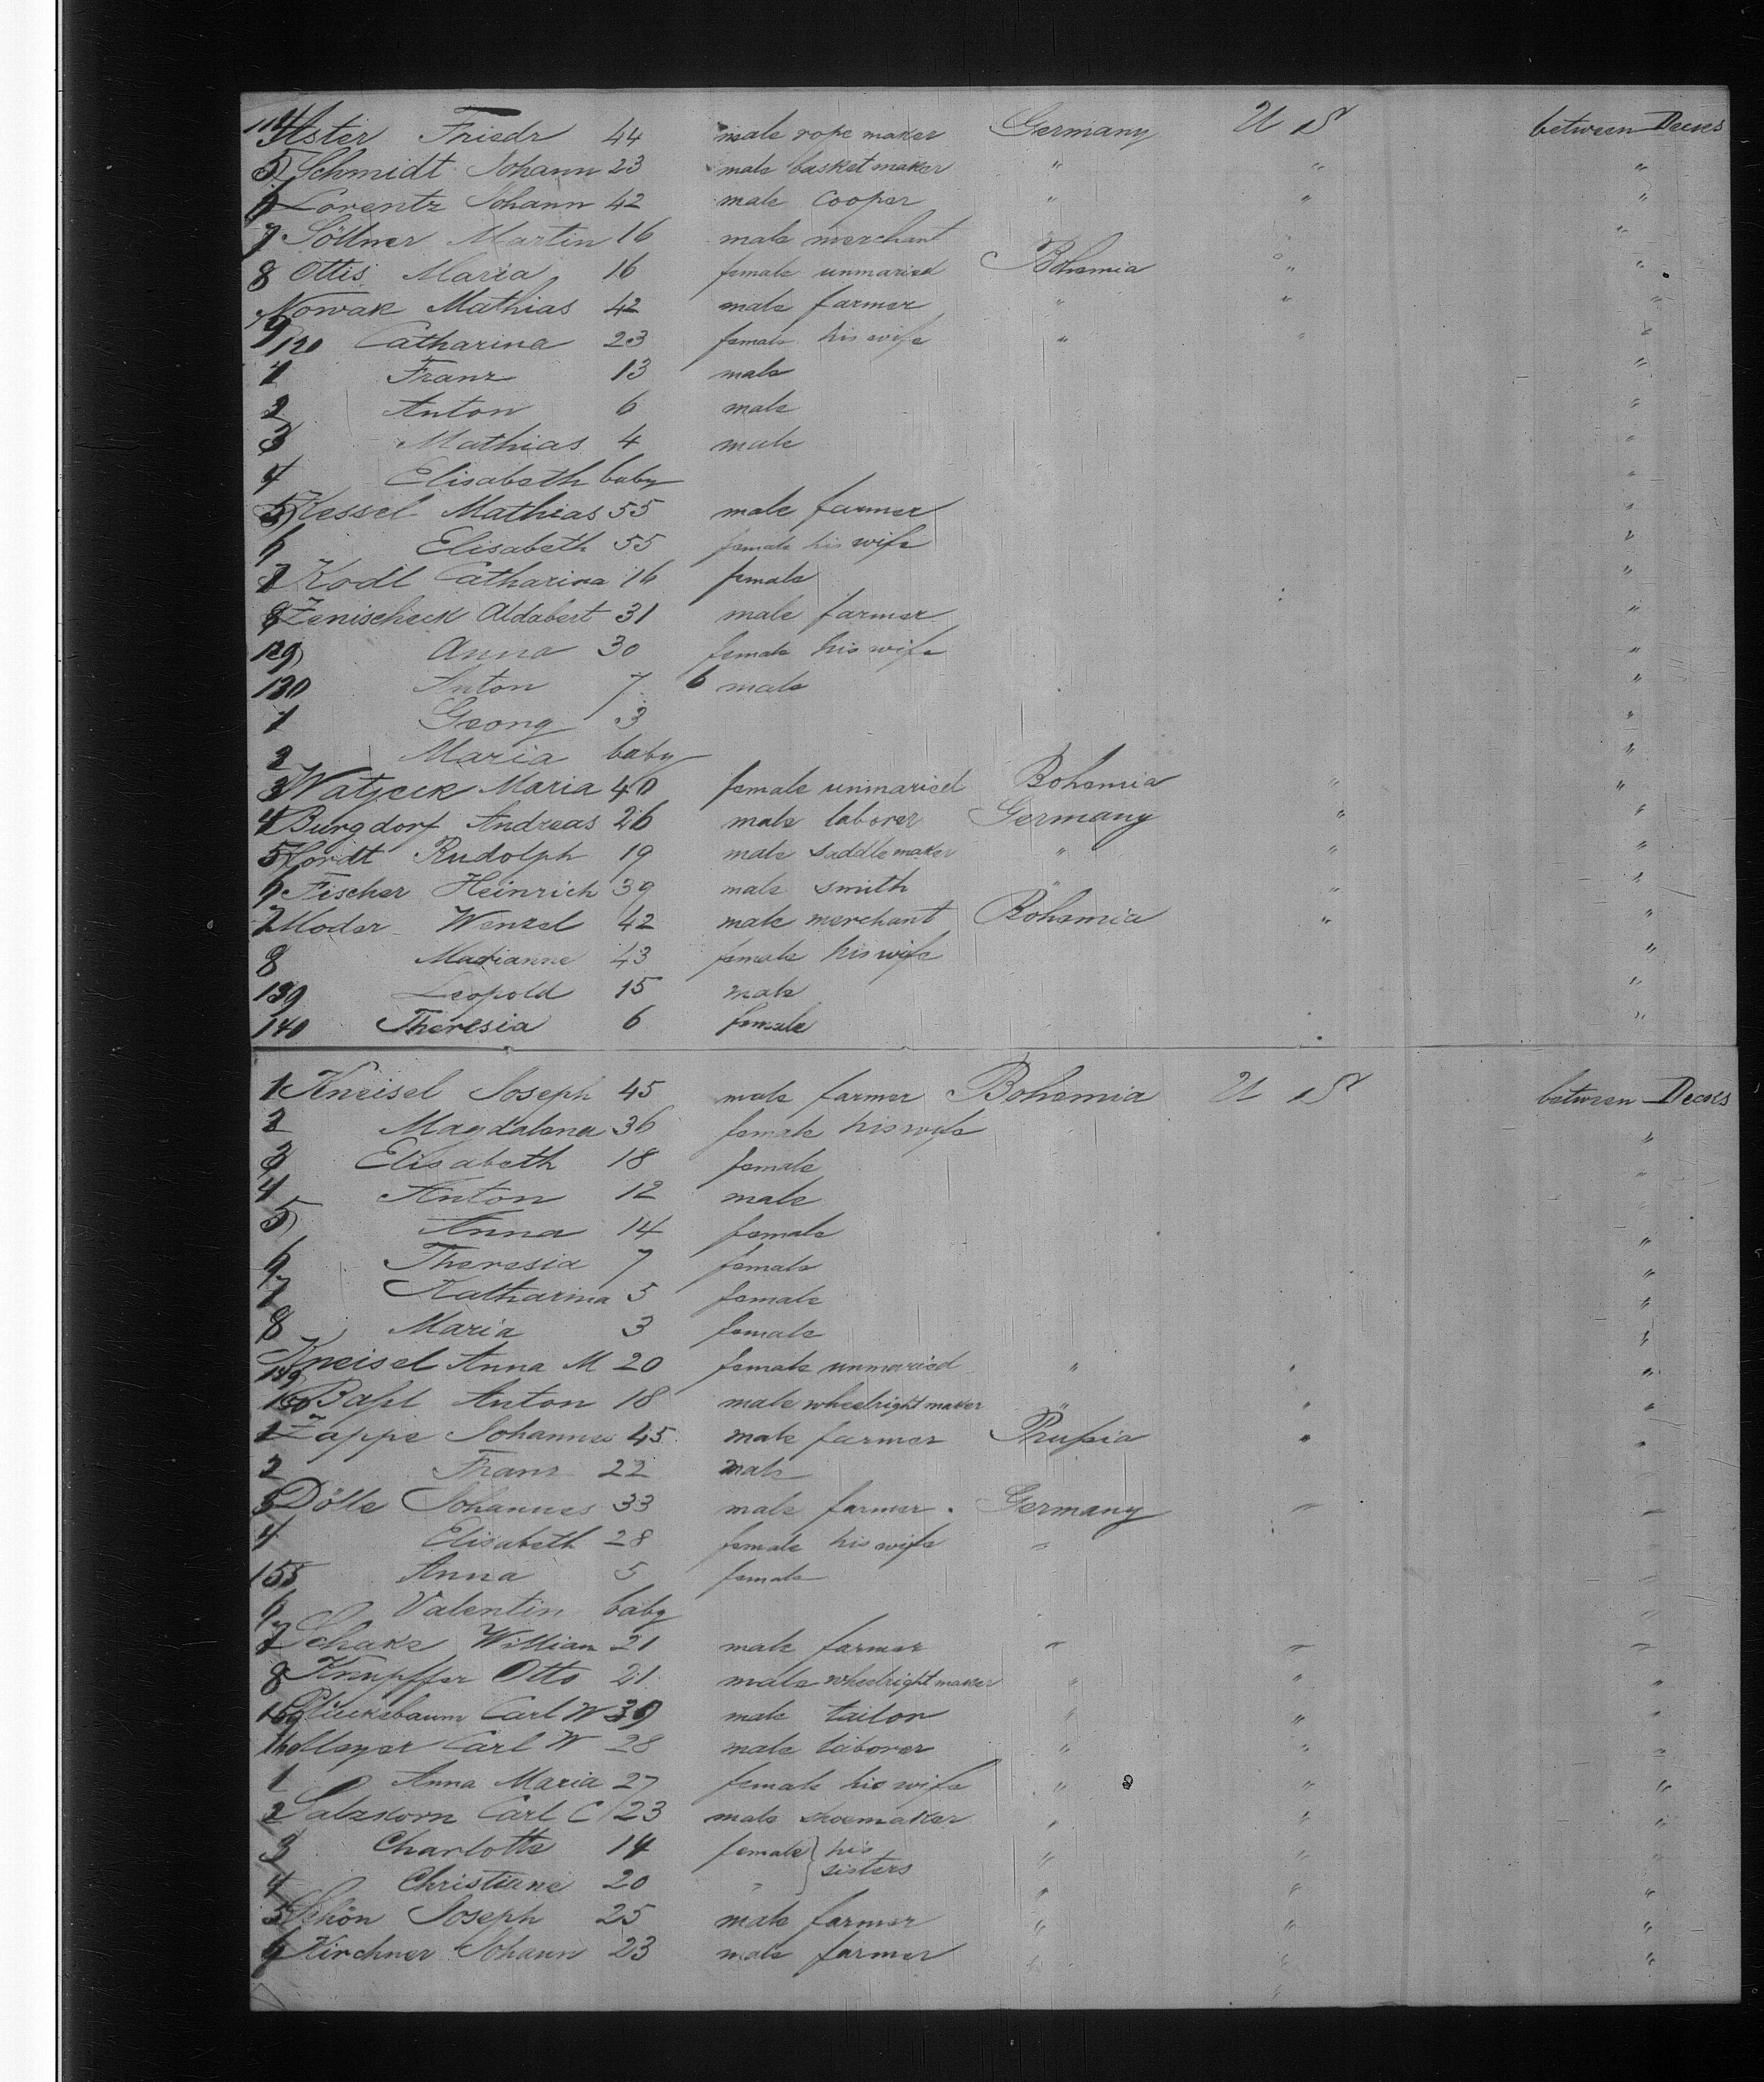 114 Aster Friedr 44 male rope maker Germany U S between Decks
5 Schmidt Johann 23 male basket maker " " "
6 Lorentz Johann 42 male cooper " " "
7 Söllner Martin 16 male merchant " "
8 Ottis Maria 16 female unmaried Bohemia " "
9 Nowak Mathias 42 male farmer " " "
120 Catharina 23 female his wife " " "
1 Franz 13 male "
2 Anton 6 male "
3 Mathias 4 male "
4 Elisabeth baby "
5 Kessel Mathias 55 male farmer "
6 Elisabeth 55 female his wife "
7 Kodl Catharina 16 female "
8 Zenischeck Aldabert 31 male farmer "
129 Anna 30 female his wife "
130 Anton 7 6 male "
1 Georg 3 "
2 Maria baby "
3 Watzeck Maria 40 female unmaried Bohemia " "
4 Burgdorf Andreas 26 male laborer Germany " "
5 Hordt Rudolph 19 male saddle maker " " "
6 Fischer Heinrich 39 male smith " " "
7 Moder Wenzel 42 male merchant Bohemia " "
8 Marianne 43 female his wife "
139 Leopold 15 male "
140 Theresia 6 female "
1 Kneisel Joseph 45 male farmer Bohemia U S between Decks
2 Magdalena 36 female his wife "
3 Elisabeth 18 female "
4 Anton 12 male "
5 Anna 14 female "
6 Theresia 7 female "
7 Katharina 5 female "
8 Maria 3 female "
149 Kneisel Anna M 20 female unmaried " " "
150 Baßl Anton 18 male wheelright maker " " "
1 Zappe Johannes 45 male farmer Prußia " "
2 Franz 22 male "
3 Dölle Johannes 33 male farmer Germany " "
4 Elisabeth 28 female his wife " "
155 Anna 5 female "
6 Valentin baby "
7 Schake William 21 male farmer " " "
8 Knupffer Otto 21 male wheelright maker " " "
159 Glücksbaum Carl W 39 male tailor " " "
160 Meyer Carl W 28 male laborer " " "
1 Anna Maria 27 female his wife " " "
2 Salzkorn Carl C 23 male shoemaker " " "
3 Charlotte 14 female } his " " "
4 Christiane 20 " } sisters " " "
5 Schön Joseph 25 male farmer " " "
6 Kirchner Johann 23 male farmer " " "